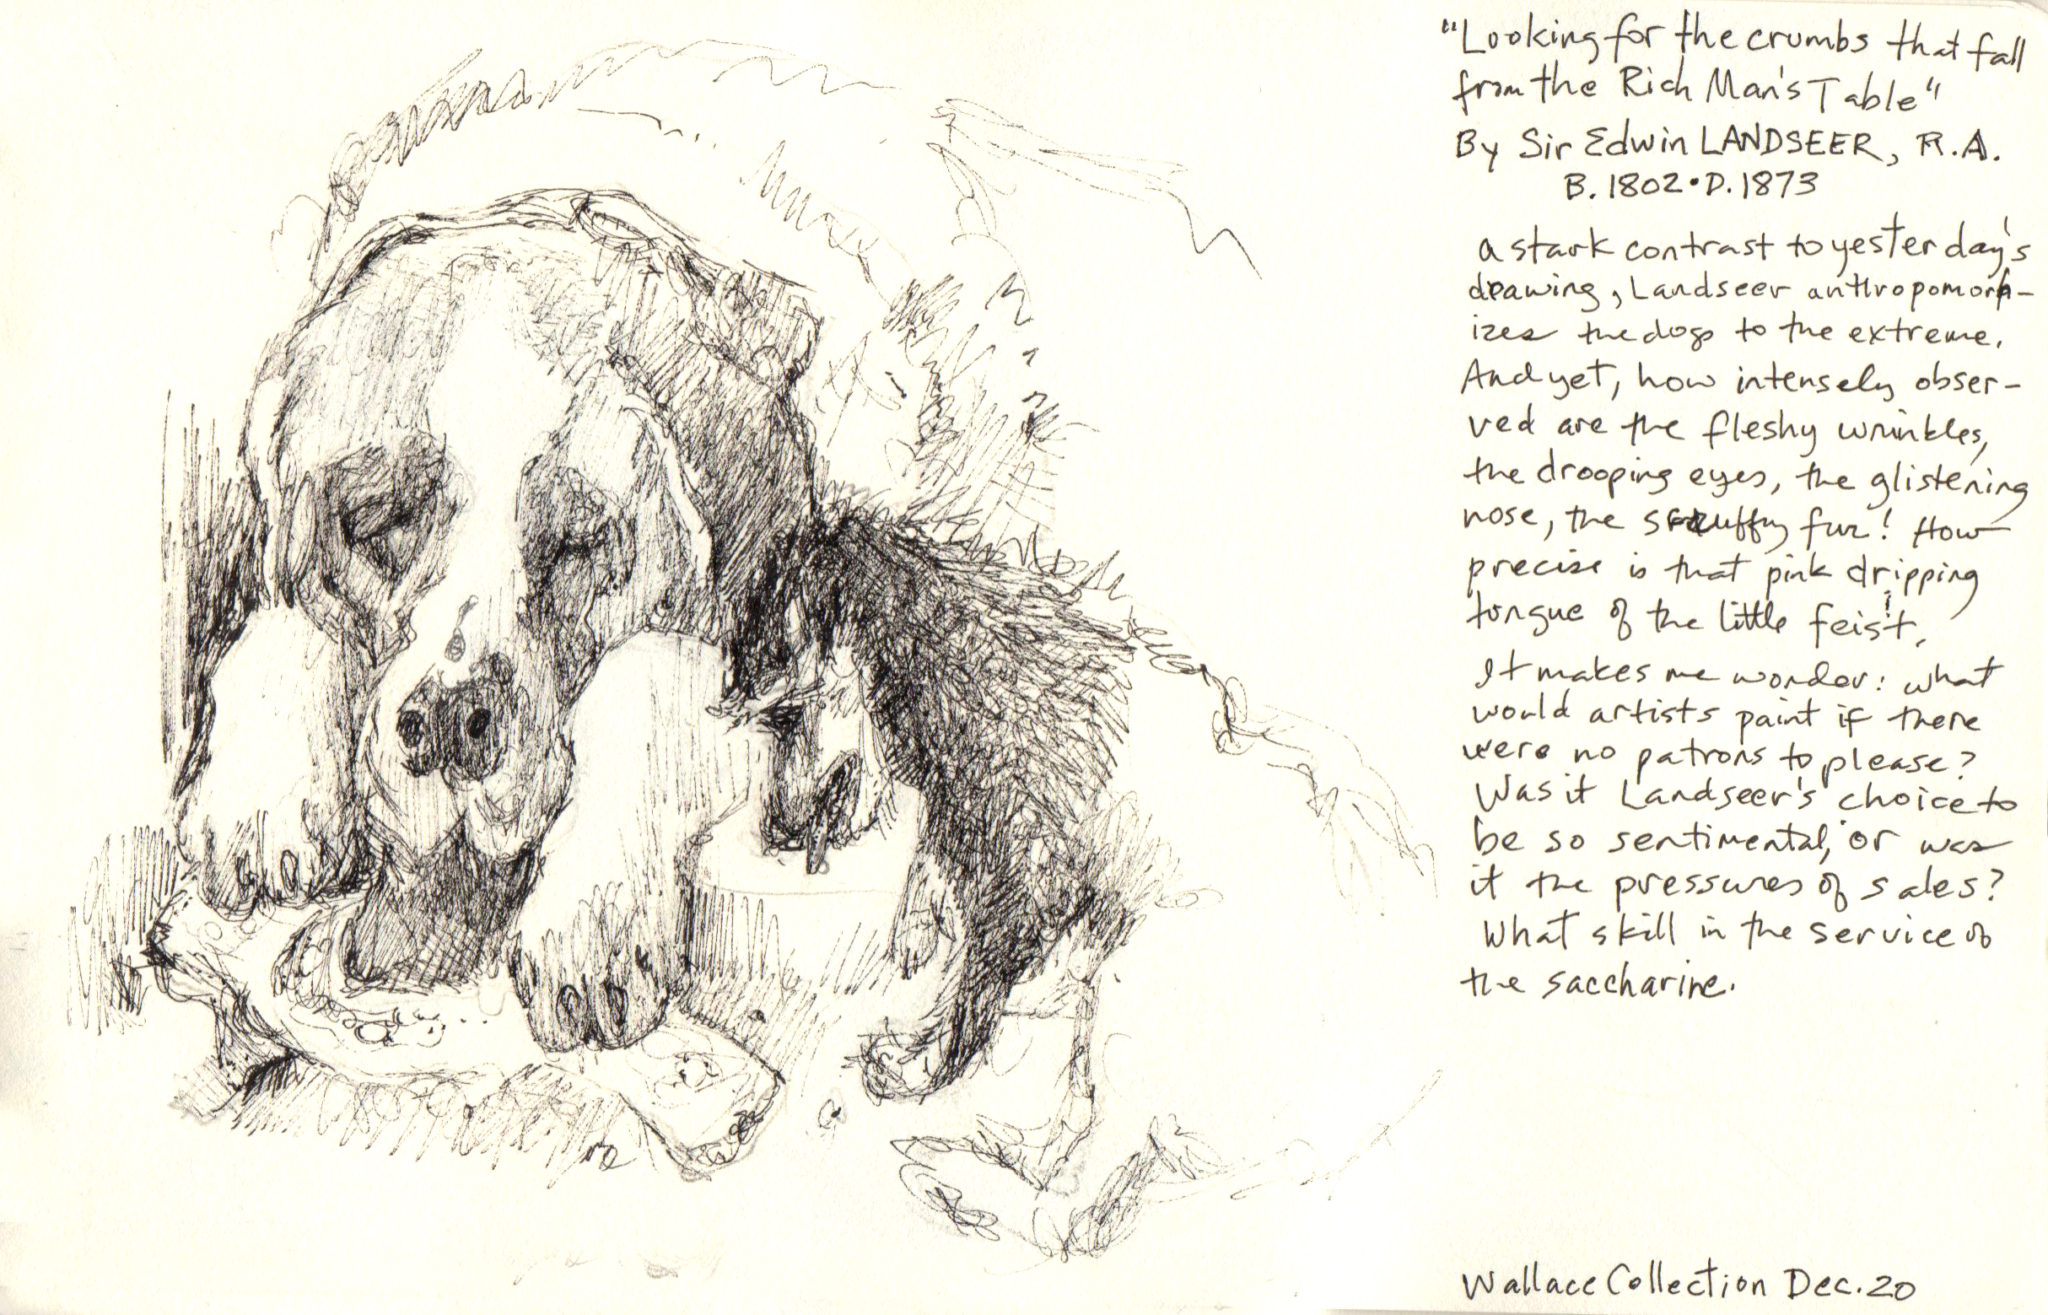 "Looking for the crumbs that fall
from the Rich Man's Table"
By Sir Edwin LANDSEER, R.A.
B. 1802 • D. 1873
a stark contrast to yesterday's
drawing, Landseer anthropomorph-
izes the dogs to the extreme.
And yet, how intensely obser-
ved are the fleshy wrinkles,
the drooping eyes, the glistening
nose, the scruffy fur! How
precise is that pink dripping
tongue of the little feist!
It makes me wonder: what
would artists paint if there
were no patrons to please?
Was it Landseer's choice to
be so sentimental, or was
it the pressures of sales?
What skill in the service of
the saccharine.
Wallace Collection Dec. 20